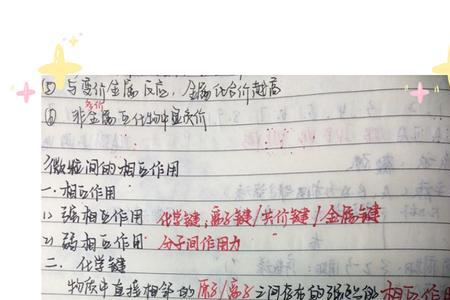 ⑤ 与变价金属反应，金属化合价越高
⑥ 非金属互化物中显负价
微粒间的相互作用
一. 相互作用
1) 强相互作用 化学键：离子键/共价键/金属键
2) 弱相互作用 分子间作用力
二. 化学键
物质中直接相邻的原子/离子之间存在的强烈的相互作用